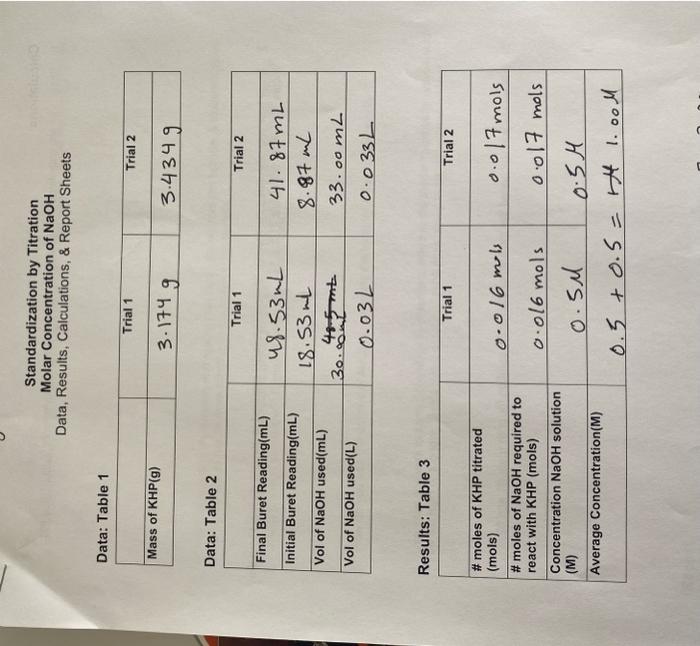 Standardization by Titration
Molar Concentration of NaOH
Data, Results, Calculations, & Report Sheets
Data: Table 1
Trial 1 Trial 2
Mass of KHP(g) 3.174 g 3.4349
Data: Table 2
Trial 1 Trial 2
Final Buret Reading(mL) 48.53mL 41.87 mL
Initial Buret Reading(mL) 18.53 mL 8.87 mL
Vol of NaOH used(mL) 30.00mL 33.00 mL
Vol of NaOH used(L) 0.03L 0.033L
Results: Table 3
Trial 1 Trial 2
# moles of KHP titrated
(mols) 0.016 mols 0.017 mols
# moles of NaOH required to
react with KHP (mols) 0.016 mols 0.017 mols
Concentration NaOH solution
(M) 0.5M 0.5M
Average Concentration(M) 0.5 + 0.5 = 1.00M